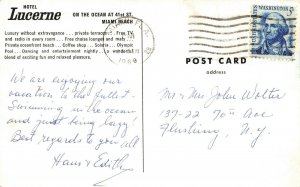 HOTEL
Lucerne
ON THE OCEAN AT 41st ST.
MIAMI BEACH
Luxury without extravagance ... private terraces ... Free TV
and radio in every room ... Free chaise lounges and mats
Private oceanfront beach ... Coffee shop ... Solaria ... Olympic
Pool ... Dancing and entertainment nightly ... a wonderful
blend of exciting fun and relaxed pleasure.
POST CARD
address
WASHINGTON
5
We are enjoying our
vacation to the fullest.
Swimming in the ocean
and just being lazy!
Best regards to you all
Hans & Edith
Mr & Mrs John Walter
137-22 70th Ave
Flushing, N.Y.